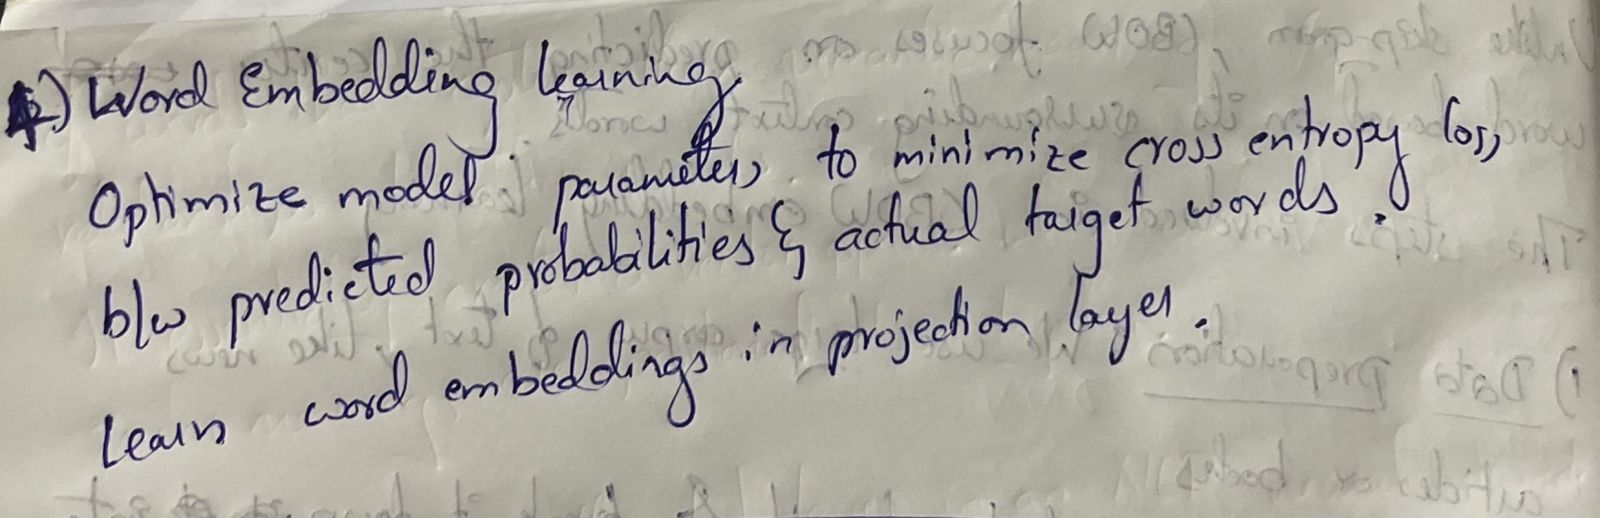 4.) Word Embedding learning
Optimize model parameters to minimize cross entropy loss
b/w predicted probabilities & actual target words.
Learn word embeddings in projection layer.